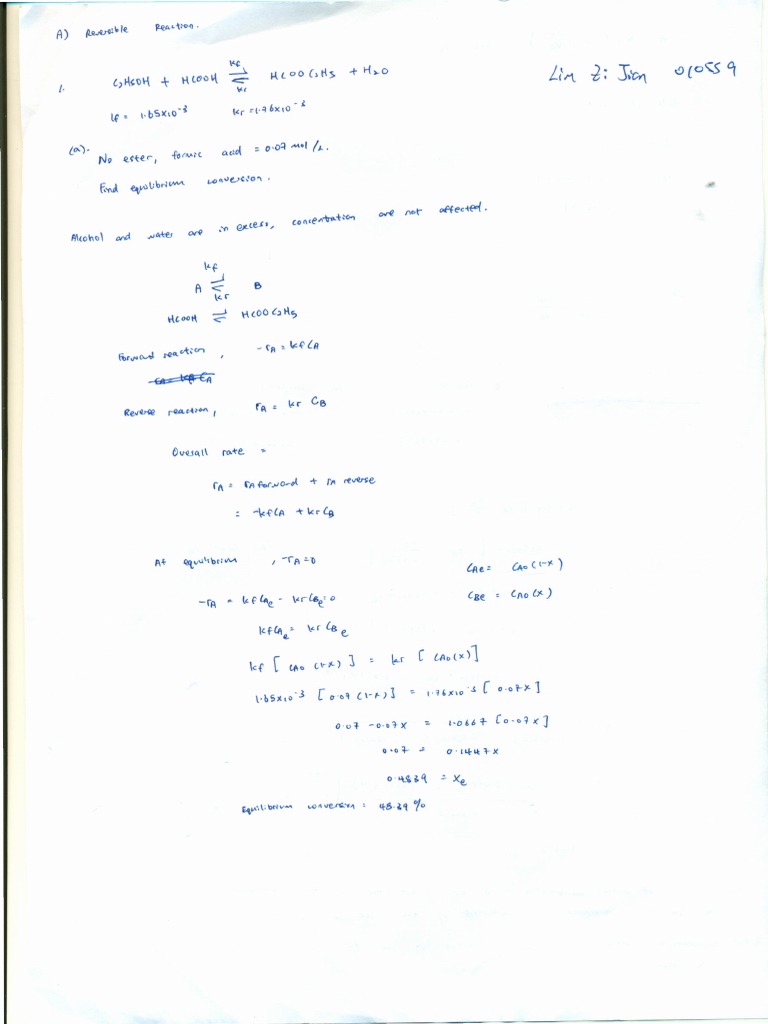 A) Reversible Reaction.
Lim Zi Jian 010559
1. C2H5OH + HCOOH kf ⇌ kr HCOOC2H5 + H2O
kf = 1.65x10^-3 kr = 1.76x10^-3
(a). No ester, formic acid = 0.07 mol/L.
Find equilibrium conversion.
Alcohol and water are in excess, concentration are not affected.
kf
A ⇌ B
kr
HCOOH ⇌ HCOOC2H5
Forward reaction, -rA = kfCA
Reverse reaction, rA = kr CB
Overall rate =
rA = rA forward + rA reverse
= -kfCA + krCB
At equilibrium, -rA = 0
CAe = CA0(1-x)
CBe = CA0(x)
-rA = kfCAe - krCBe = 0
kfCAe = krCBe
kf [CA0 (1-x)] = kr [CA0(x)]
1.65x10^-3 [0.07 (1-x)] = 1.76x10^-3 [0.07x]
0.07 - 0.07x = 1.0667 [0.07x]
0.07 = 0.1447x
0.4839 = xe
Equilibrium conversion = 48.39 %